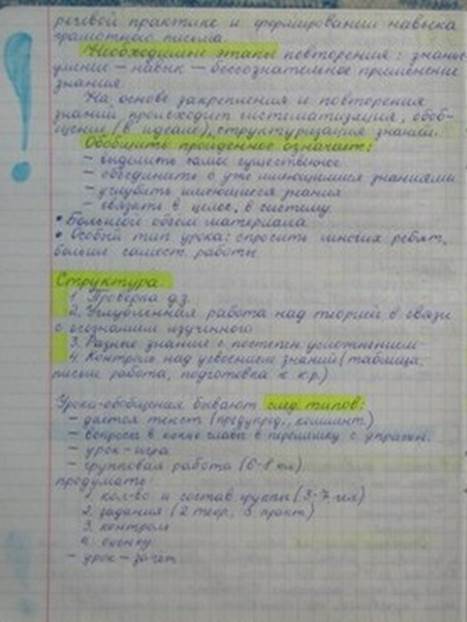 речевой практике и формировании навыка
грамотного письма.
Необходимые этапы повторения: знание
умение — навык — бессознательное применение
знания.
На основе закрепления и повторения
знаний происходит систематизация, обоб-
щение (в идеале), структуризация знаний.
Обобщить пройденное означает:
– выделить самое существенное
– объединить с уже имеющимися знаниями
– углубить имеющиеся знания
– связать в целое, в систему.
• Большой объем материала
• Особый тип урока: спросить многих ребят,
больше самост. работы
Структура
1. Проверка дз.
2. Углубленная работа над теорией в связи
с осознанием изученного
3. Разные знания с постепен. уплотнением
4. Контроль над усвоением знаний (таблица,
письм. работа, подготовка к к.р.)
Уроки-обобщения бывают след. типов:
– дается текст (предупред., коммент.)
– вопросы в конце главы в перемешку с упражн.
– урок-игра
– групповая работа (6-8 кл.)
продумать:
1. кол-во и состав группы (3-7 чел)
2. задания (2 теор., 3 практ.)
3. контроль
4. оценку
– урок – зачет